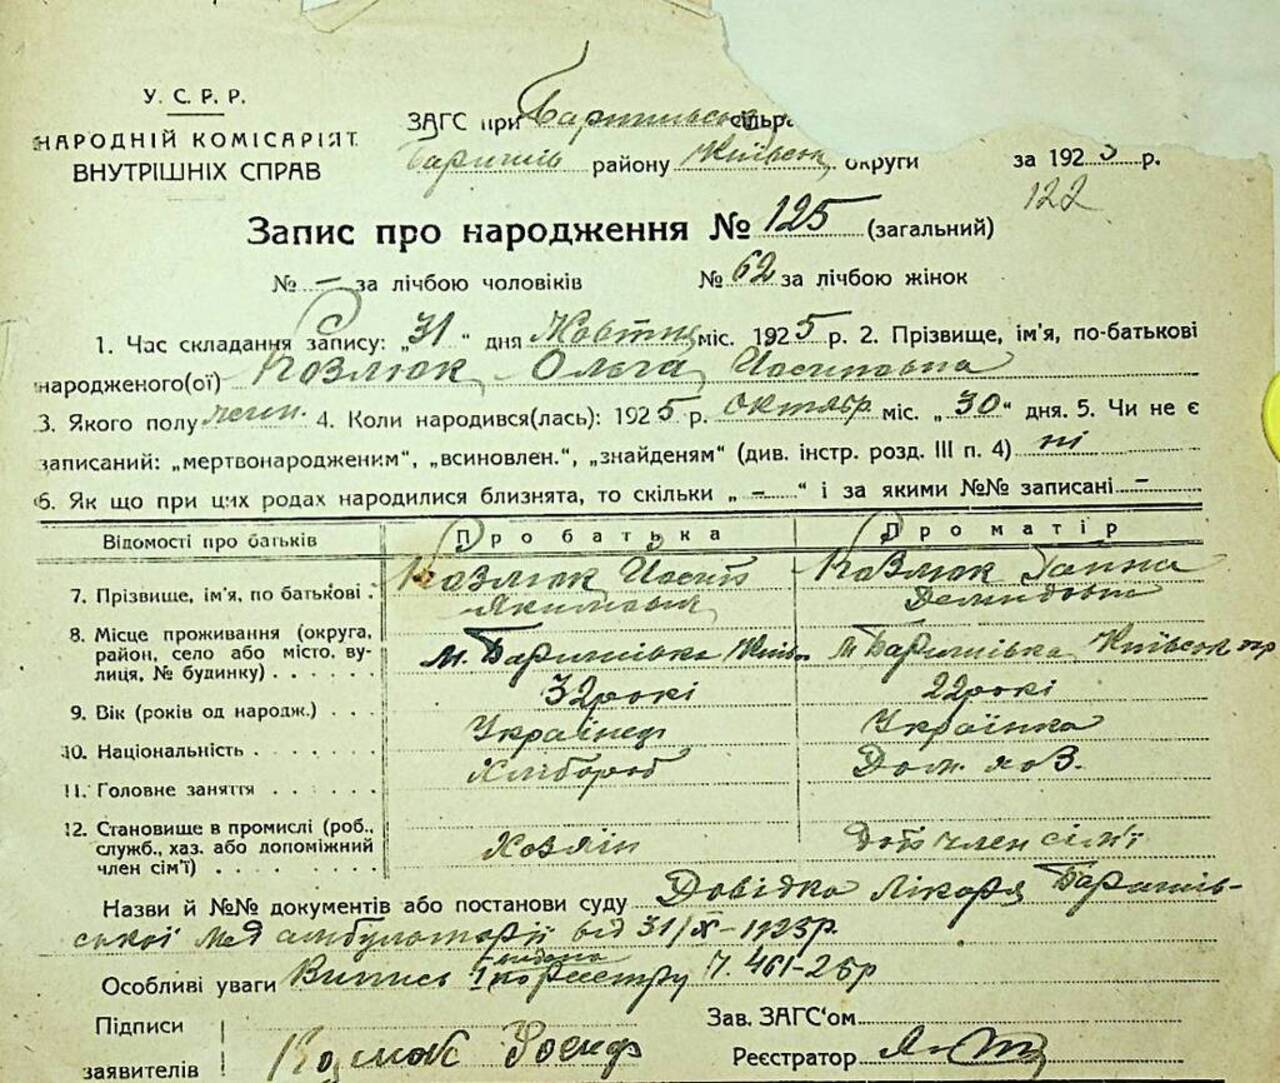 У. С. Р. Р.
НАРОДНІЙ КОМІСАРІЯТ
ВНУТРІШНІХ СПРАВ
ЗАГС при Баришівськ сільра
Баришів району Київськ округи за 1925 р.
122
Запис про народження № 125 (загальний)
№ – за лічбою чоловіків № 62 за лічбою жінок
1. Час складання запису: „31“ дня Жовтня міс. 1925 р. 2. Прізвище, ім'я, по-батькові
народженого(ої) Козлюк Ольга Иосиповна
3. Якого полу жін. 4. Коли народився(лась): 1925 р. октябр міс. „30“ дня. 5. Чи не є
записаний: „мертвонародженим“, „всиновлен.“, „знайденям“ (див. інстр. розд. III п. 4) ні
6. Як що при цих родах народилися близнята, то скільки „ – “ і за якими №№ записані –
Відомості про батьків Про батька Про матір
7. Прізвище, ім'я, по батькові . Козлюк Иосип Якимович Козлюк Ганна Демидовна
8. Місце проживання (округа, район, село або місто, вулиця, № будинку) . . . . . . м. Баришівка Київ. м Баришівка Київськ окр
9. Вік (років од народж.) . . . 32 рокі 22 рокі
10. Національність . . . . . . . Українець Українка
11. Головне заняття . . . . . . Хлібороб Дом. хоз.
12. Становище в промислі (роб., служб., хаз. або допоміжний член сім'ї) . . . . . . . . Хозяїн доп член сім'ї
Назви й №№ документів або постанови суду Довідка лікаря Баришів-
ської мед амбулаторії від 31/X–1925р.
Особливі уваги Випись видана по реєстру Ч. 461-25р
Підписи
заявителів Козлюк
Зав. ЗАГС'ом
Реєстратор